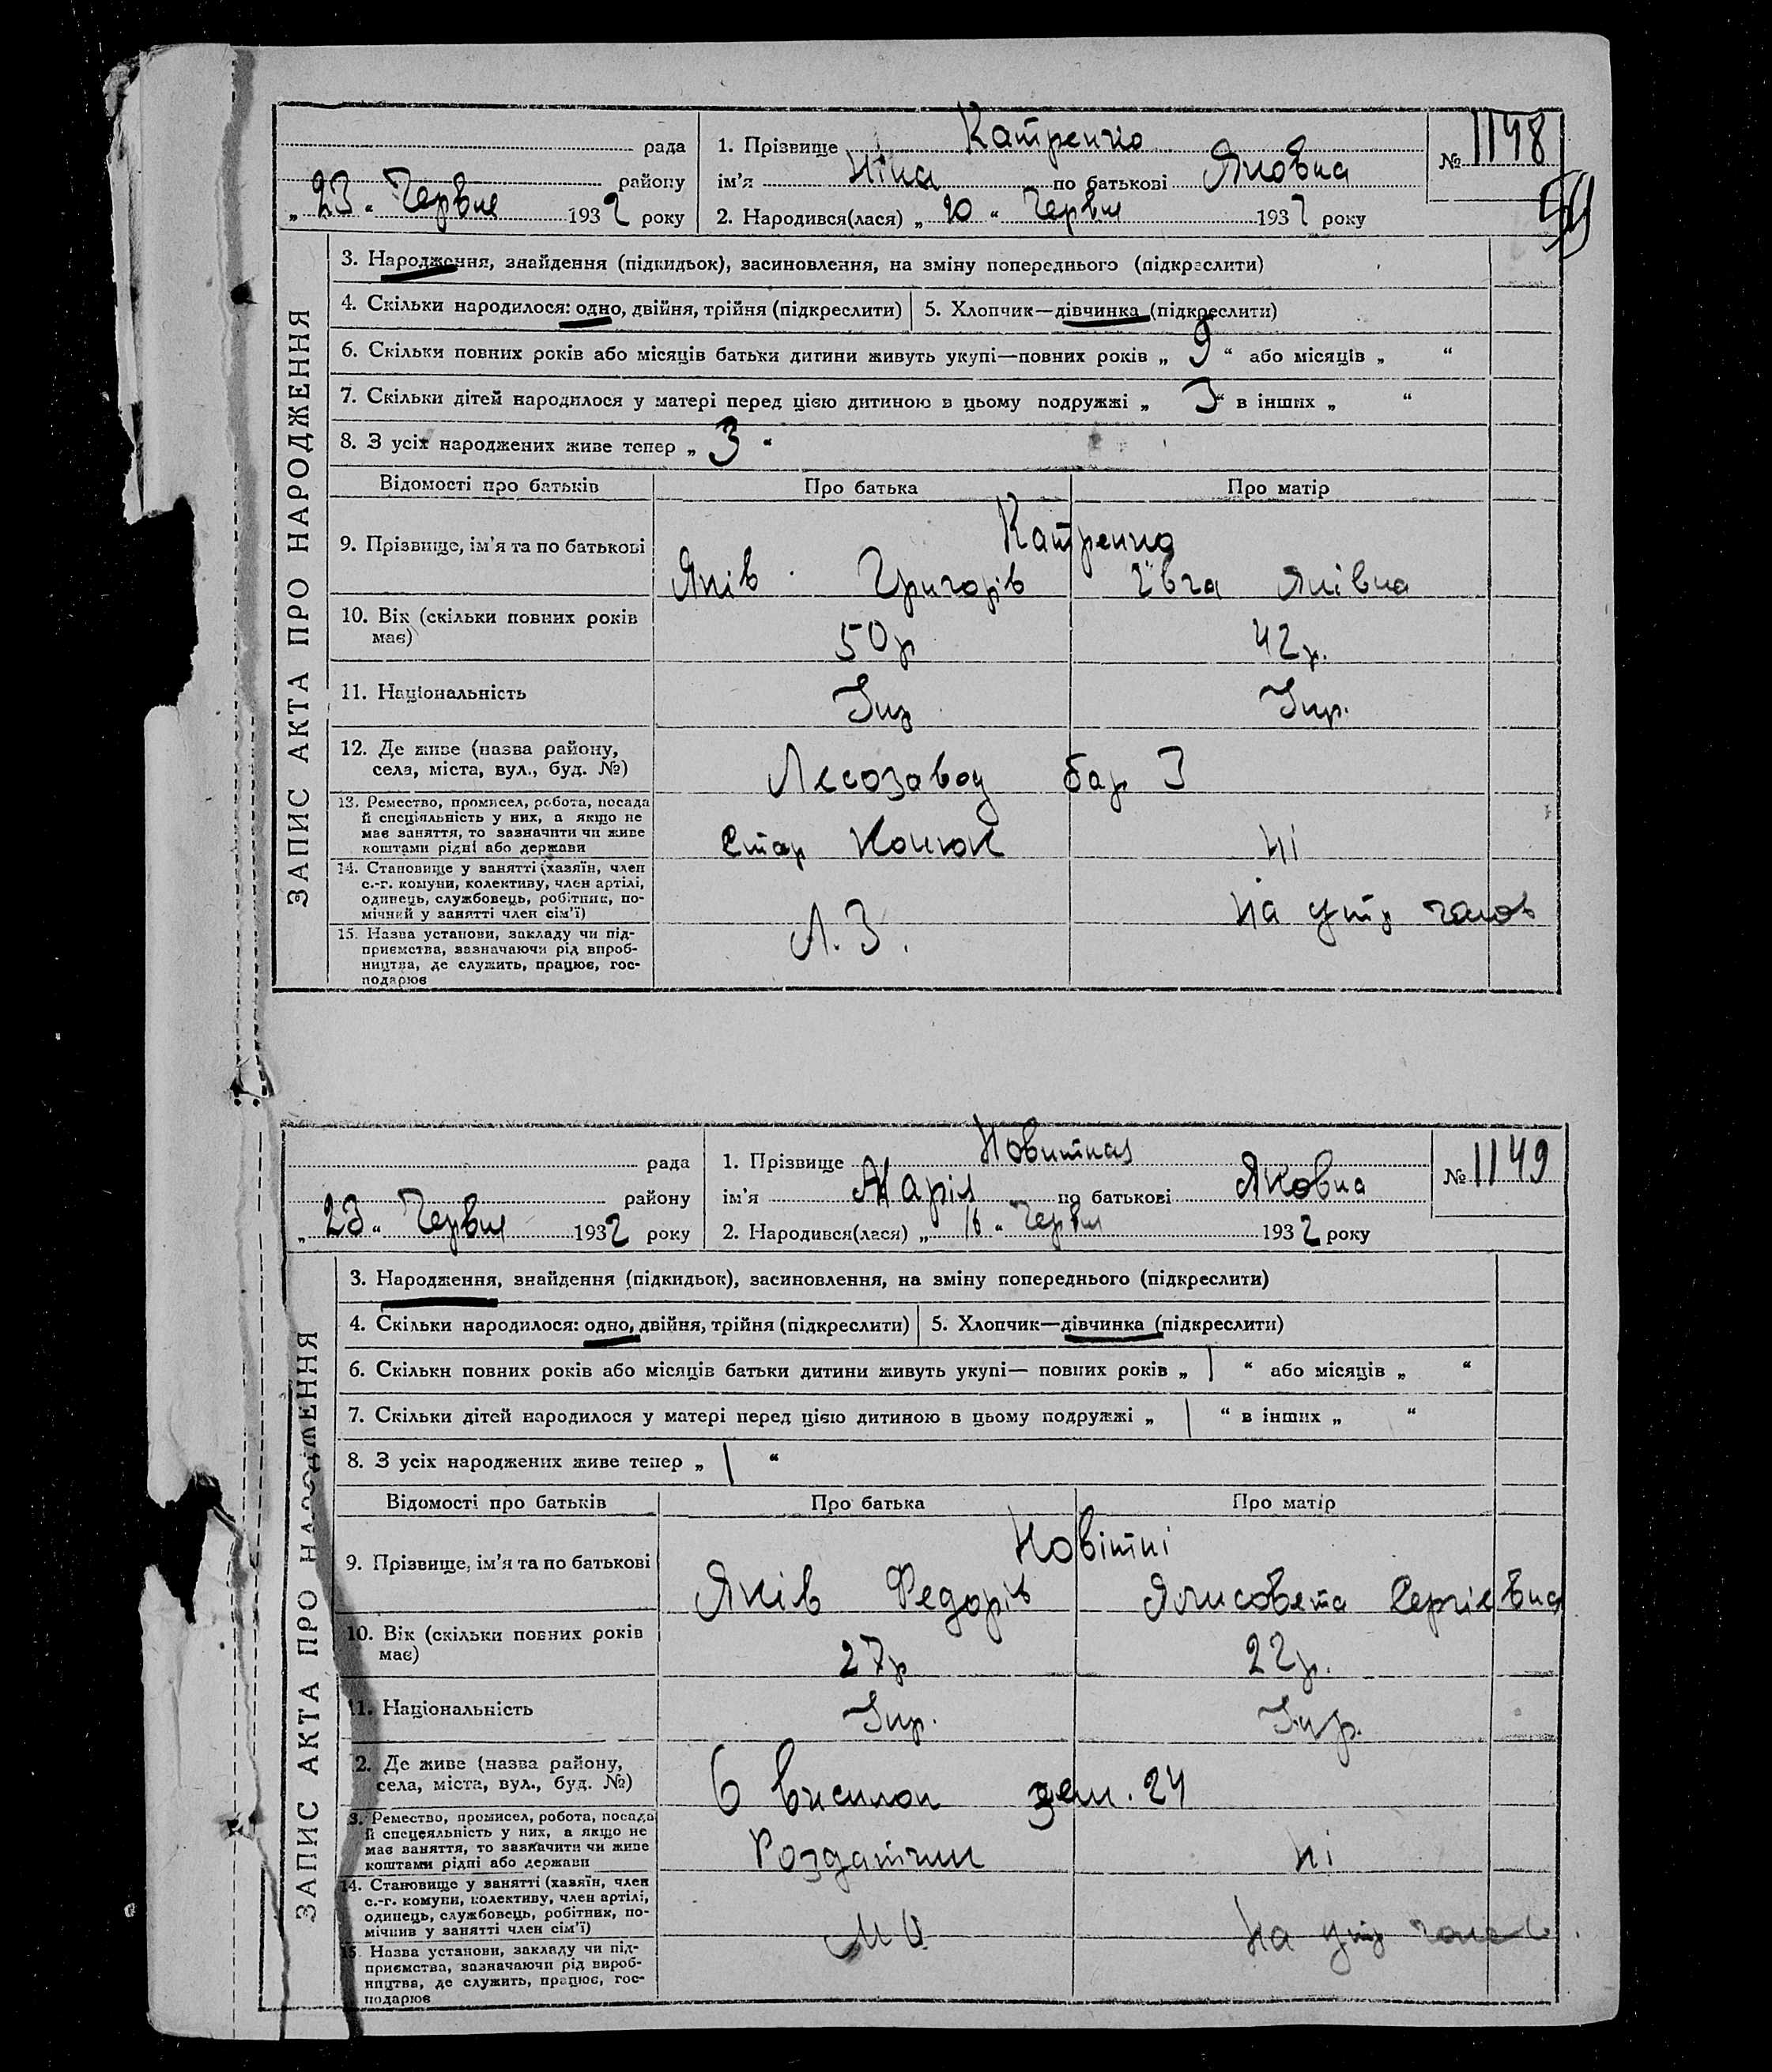 рада
1. Прізвище Катренко
№ 1148
району
ім'я Ніна по батькові Яковна
„ 23 “ Червня 1932 року
2. Народився(лася) „ 20 “ Червня 1932 року
59
ЗАПИС АКТА ПРО НАРОДЖЕННЯ
3. Народження, знайдення (підкидьок), засиновлення, на зміну попереднього (підкреслити)
4. Скільки народилося: одно, двійня, трійня (підкреслити) 5. Хлопчик—дівчинка (підкреслити)
6. Скільки повних років або місяців батьки дитини живуть укупі—повних років „ 9 “ або місяців „ “
7. Скільки дітей народилося у матері перед цією дитиною в цьому подружжі „ 3 “ в інших „ “
8. З усіх народжених живе тепер „ 3 “
Відомості про батьків Про батька Про матір
9. Прізвище, ім'я та по батькові
Катренко
Яків Григорів Ївга Яківна
10. Вік (скільки повних років
має)
50р 42р.
11. Національність
Укр Укр.
12. Де живе (назва району,
села, міста, вул., буд. №)
Лесозавод бар 3
13. Ремество, промисел, робота, посада
й спеціяльність у них, а якщо не
має заняття, то зазначити чи живе
коштами рідні або держави
Стар Конюх ні
14. Становище у занятті (хазяїн, член
с.-г. комуни, колективу, член артілі,
одинець, службовець, робітник, по-
мічний у занятті член сім'ї)
на утр
15. Назва установи, закладу чи під-
приємства, зазначаючи рід вироб-
ництва, де служить, працює, гос-
подарює
Л.З.
рада
1. Прізвище Новитная
№ 1149
району
ім'я Марія по батькові Яковна
„ 23 “ Червня 1932 року
2. Народився(лася) „ 16 “ Червня 1932 року
ЗАПИС АКТА ПРО НАРОДЖЕННЯ
3. Народження, знайдення (підкидьок), засиновлення, на зміну попереднього (підкреслити)
4. Скільки народилося: одно, двійня, трійня (підкреслити) 5. Хлопчик—дівчинка (підкреслити)
6. Скільки повних років або місяців батьки дитини живуть укупі— повних років „ 1 “ або місяців „ “
7. Скільки дітей народилося у матері перед цією дитиною в цьому подружжі „ 1 “ в інших „ “
8. З усіх народжених живе тепер „ 1 “
Відомості про батьків Про батька Про матір
9. Прізвище, ім'я та по батькові
Новітні
Яків Федорів Ялисовета Сергієвна
10. Вік (скільки повних років
має)
27р 22р.
11. Національність
Укр. Укр.
12. Де живе (назва району,
села, міста, вул., буд. №)
6 зем. 24
13. Ремество, промисел, робота, посада
й спецеяльність у них, а якщо не
має заняття, то зазначити чи живе
коштами рідні або держави
Роздатчик ні
14. Становище у занятті (хазяїн, член
с.-г. комуни, колективу, член артілі,
одинець, службовець, робітник, по-
мічник у занятті член сім'ї)
на утр
15. Назва установи, закладу чи під-
приємства, зазначаючи рід вироб-
ництва, де служить, працює, гос-
подарює